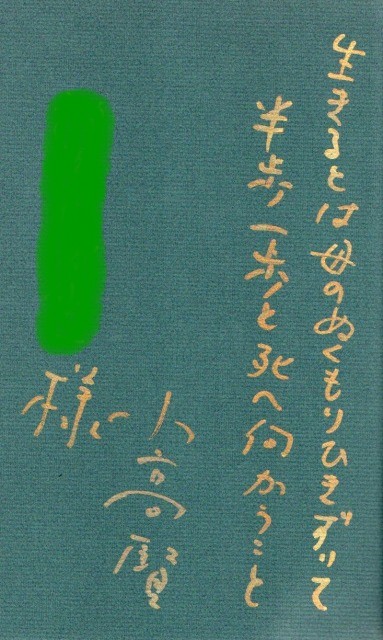 生きるとは母のぬくもりひきずりて
半歩一歩と死へ向かうこと
小高賢
様